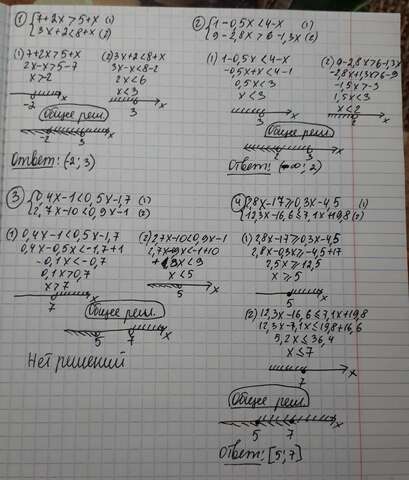 ① { 7+2x>5+x (1)
3x+2<8+x (2)
(1) 7+2x>5+x
2x-x>5-7
x>-2
-2 x
(2) 3x+2<8+x
3x-x<8-2
2x<6
x<3
3 x
Общее реш.
-2 3 x
Ответ: (-2; 3)
② { 1-0,5x<4-x (1)
9-2,8x>6-1,3x (2)
(1) 1-0,5x<4-x
-0,5x+x<4-1
0,5x<3
x<3
3 x
(2) 9-2,8x>6-1,3x
-2,8x+1,3x>6-9
-1,5x>-3
1,5x<3
x<2
2 x
Общее реш.
2 3 x
Ответ: (-∞; 2)
③ { 0,4x-1<0,5x-1,7 (1)
2,7x-10<0,9x-1 (2)
1) 0,4x-1<0,5x-1,7
0,4x-0,5x<-1,7+1
-0,1x<-0,7
0,1x>0,7
x>7
7 x
(2) 2,7x-10<0,9x-1
x<9
x<5
5 x
Общее реш.
5 7 x
Нет решений
④ { 2,8x-17≥0,3x-4,5 (1)
12,3x-16,6≤7,1x+19,8 (2)
(1) 2,8x-17≥0,3x-4,5
2,8x-0,3x≥-4,5+17
2,5x≥12,5
x≥5
5 x
(2) 12,3x-16,6≤7,1x+19,8
12,3x-7,1x≤19,8+16,6
5,2x≤36,4
x≤7
7 x
Общее реш.
5 7 x
Ответ: [5; 7]